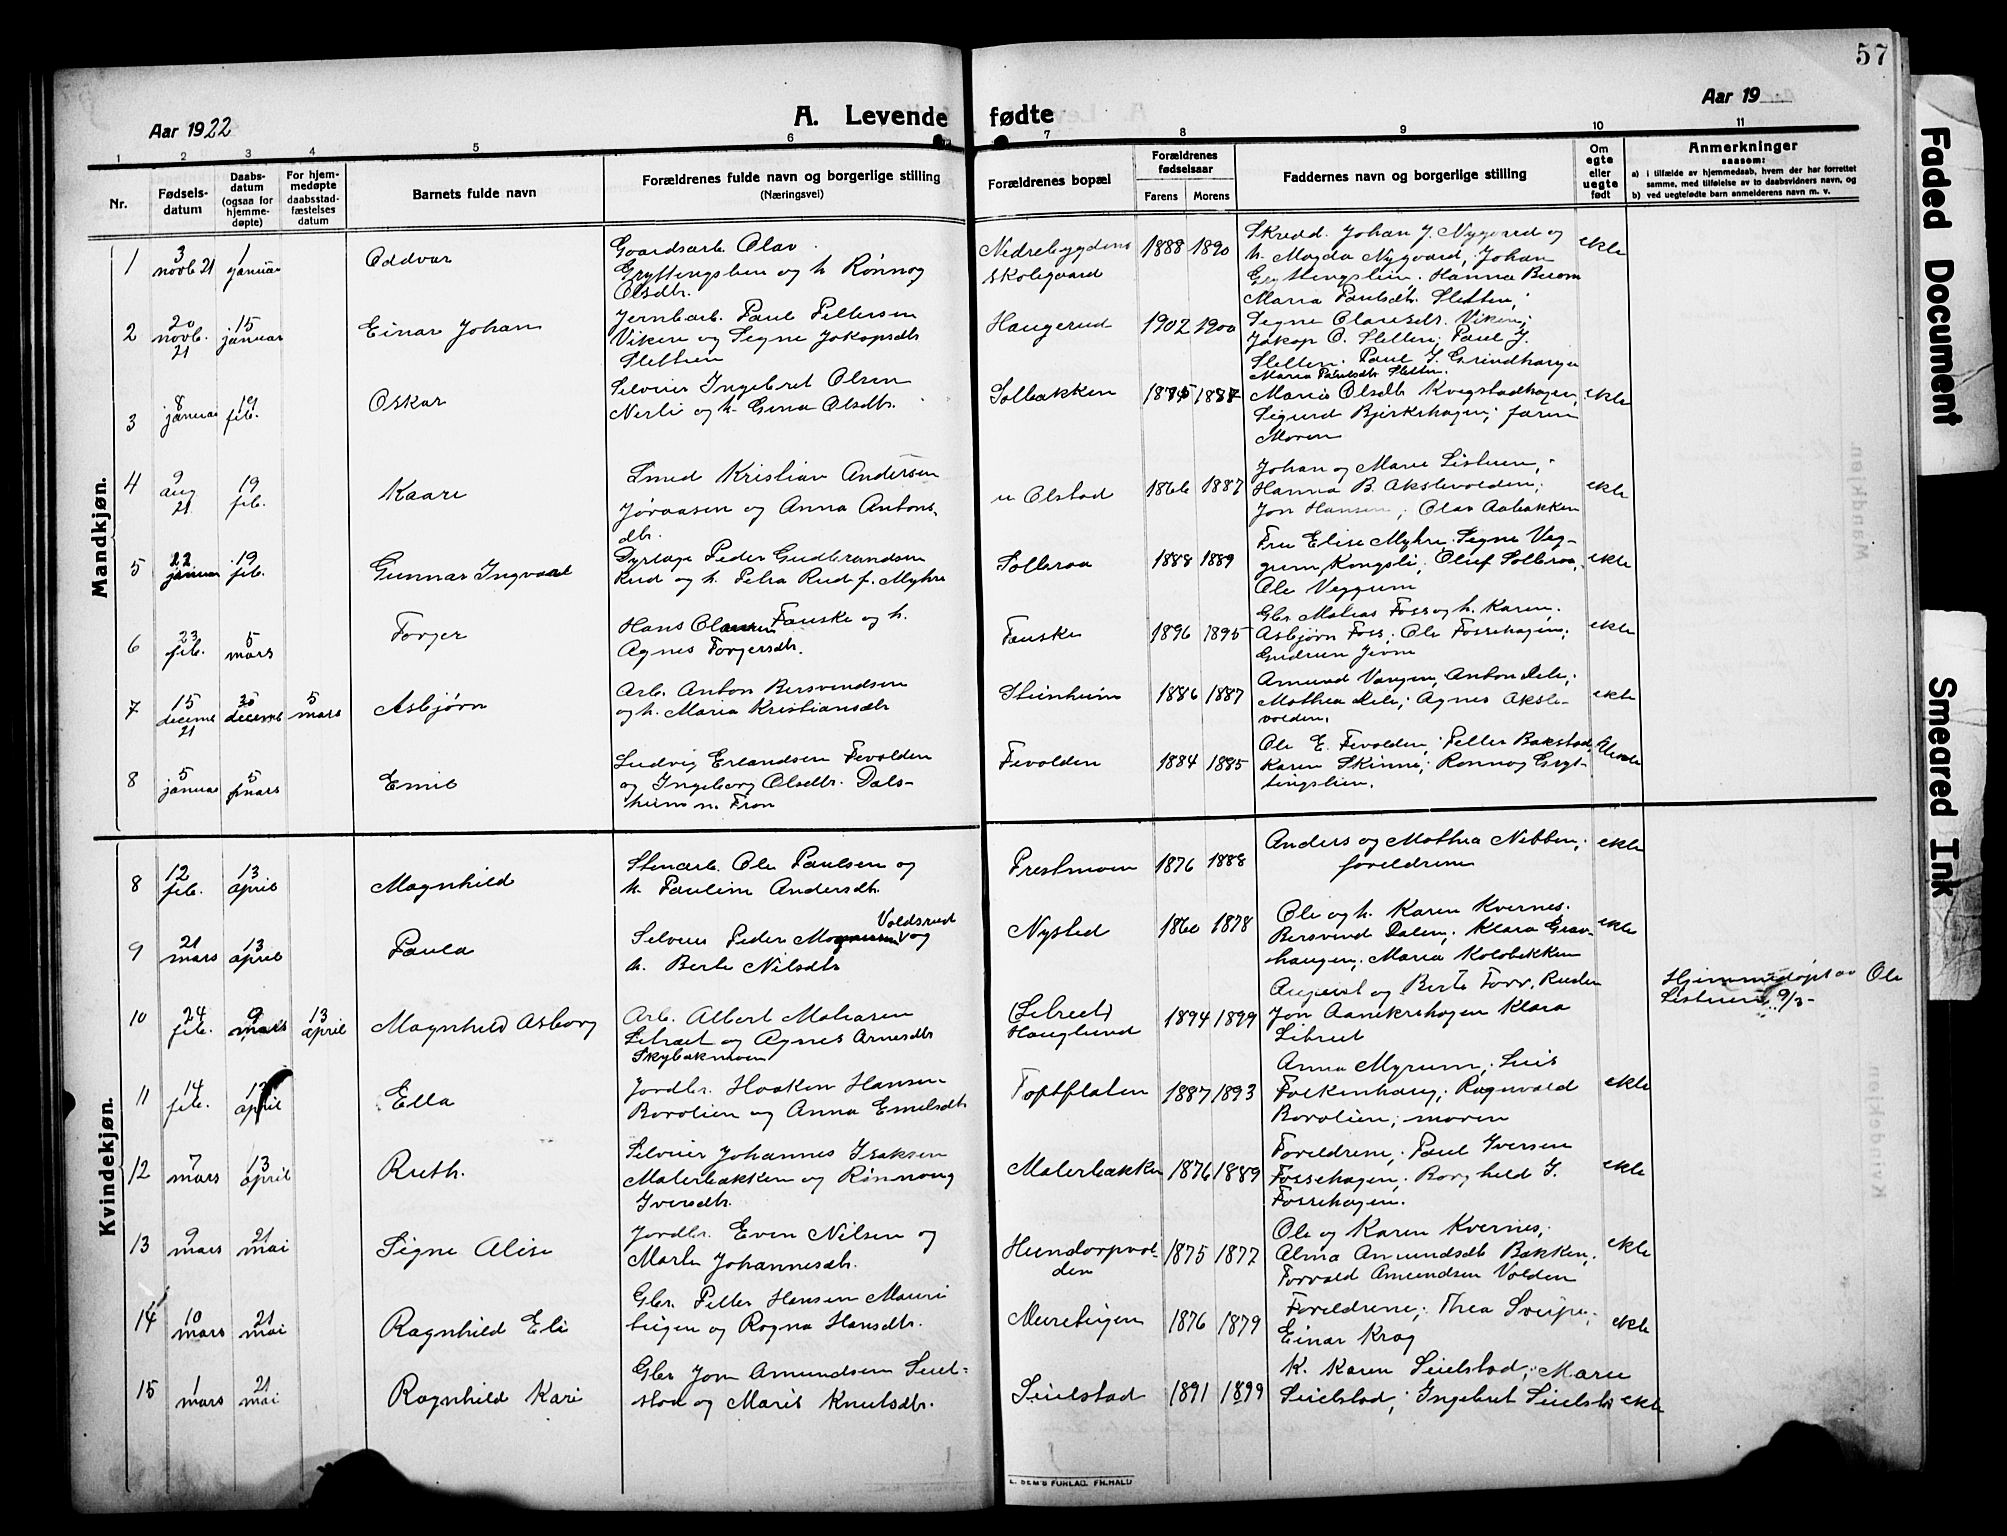 57
Aar 1922
A. Levende fødte
Aar 19
1 2 3 4 5 6 7 8 9 10 11
Nr.
Fødsels-
datum
Daabs-
datum
(ogsaa for
hjemme-
døpte)
For hjem-
medøpte
daabsstad-
fæstelses
datum
Barnets fulde navn
Forældrenes fulde navn og borgerlige stilling
(Næringsvei)
Forældrenes bopæl
Forældrenes
fødselsaar
Farens Morens
Faddernes navn og borgerlige stilling
Om
egte
eller
uegte
født
Anmerkninger
saasom:
a) i tilfælde av hjemmedaab, hvem der har forrettet
samme, med tilføielse av to daabsvidners navn, og
b) ved uegtefødte barn anmelderens navn m. v.
Mandkjøn.
1
3 novb 21
1 januar
Oddvar
Gaardsarb. Olav
Gryttingslien og h. Rønnog
Olsdtr.
Nedrebygdens
skolegaard
1888 1890
Johan J. Nygaard og
h. Magda Nygaard, Johan
Gryttingslien. Hanna
ekte
2
20 novb. 21
15 januar
Einar Johan
Jernbarb. Paul Pettersen
Viken og Signe Jakopsdtr
Sletten
Haugerud
1902 1900
Maria Paulsdtr. Sletten;
Signe Viken;
Jakop O. Sletten; Paul J.
Sletten. Paul J. Grindhagen
3
8 januar
19 feb.
Oskar
Selveier Ingebret Olsen
Nerli og h. Gina Olsdtr.
Solbakken
1887
Maria Paulsdtr Sletten.
Marie Olsdtr Kvegstadhagen,
Sigurd Bjirkehagen; faren
Moren
ekte
4
9 aug 21
19 feb.
Kaare
Smed Kristian Andersen
Jøraasen og Anna Antons-
dtr.
n Olstad
1866 1887
Johan og Marie Listuen;
Hanna B. Akslevolden;
Jon Hansen; Olav Aabakken
ekte
5
22 januar
19 feb.
Gunnar Ingvald
Dyrlæge Peder Gudbrandsen
Rud og h. Petra Rud f. Myhre
Solbraa
1888 1889
Fru Elise Myhre. Signe Veg-
gum, Kongsli; Oluf Solbraa,
Ole Veggum
ekte
6
23 feb.
5 mars
Torger
Hans Fauske og h.
Agnes Torgersdtr.
Fauske
1896 1895
Gbr Matias Foss og h. Karen;
Asbjørn Foss; Ole Fossehagen;
Gudrun
ekte
7
15 decemb 21
30 decemb
5 mars
Asbjørn
Arb. Anton Bersvendsen
og h. Maria Kristiansdtr
Steinheim
1886 1887
Amund Vangen, Anton Lele;
Mathea Lele; Agnes Aksle-
volden.
ekte
8
5 januar
5 mars
Emil
Ludvig Erlandsen Fevolden
og Ingeborg Olsdtr. Dals-
heim n. Fron
Fevolden
1884 1885
Ole E. Fevolden; Petter Bakstad,
Karen Skinne; Rønnog Gryt-
tingslien.
Kvindekjøn.
8
12 feb.
13 april
Magnhild
Stenarb. Ole Paulsen og
h. Pauline Andersdtr.
Prestmoen
1876 1888
Anders og Mathea Nibben;
foreldrene
ekte
9
21 mars
13 april
Paula
Voldsrud
Selveier Peder og
h. Berte Nilsdtr
Nysted
1860 1878
Ole og h. Karen Kvernes.
Bersvend Dalen; Klara Grav-
haugen; Maria Kolobekken
ekte
10
24 feb.
9 mars
13 april
Magnhild Asborg
Arb. Albert Matiasen
Librect og Agnes Arnesdtr
Skybakmoen
(Librect)
Hauglund
1894 1899
August og Berte Ruden
Jon Aanekrehagen Klara
Librect
Hjemmedøpt av Ole
Listuen 9/3-
11
14 feb.
13 april
Ella
Jordbr. Haaken Hansen
Borolien og Anna Emilsdtr
Toftflaten
1887 1893
Anna Myrum;
Folkenhaug; Ragnvald
Borolien; moren
ekte
12
7 mars
13 april
Ruth.
Selveier Johannes Isaksen
Malerbakken og Rønnoug
Iversdtr.
Malerbakken
1876 1889
Foreldrene; Paul Iversen
Fossehagen; Borghild I.
Fossehagen.
ekte
13
9 mars
21 mai
Signe Alise
Jordbr. Even Nilsen og
Marte Johannesdtr.
Hundorpvol-
den
1875 1877
Ole og Karen Kvernes;
Alma Amundsdtr Bakken;
Torvald Amundsen Volden
ekte
14
10 mars
21 mai
Ragnhild Eli
Gbr. Petter Hansen Maure
og Ragna Hansdtr.
1876 1879
Foreldrene; Thea Sveipe;
Einar Krag
ekte
15
1 mars
21 mai
Ragnhild Kari
Gbr Jon Amundsen Seiel-
stad og Marit Knutsdtr.
Seielstad
1891 1899
K. Karen Seielstad; Marie
Seielstad; Ingebret Seielst
ekte
E. SEM'S FORLAG. FR.HALD
Faded Document
Smeared Ink